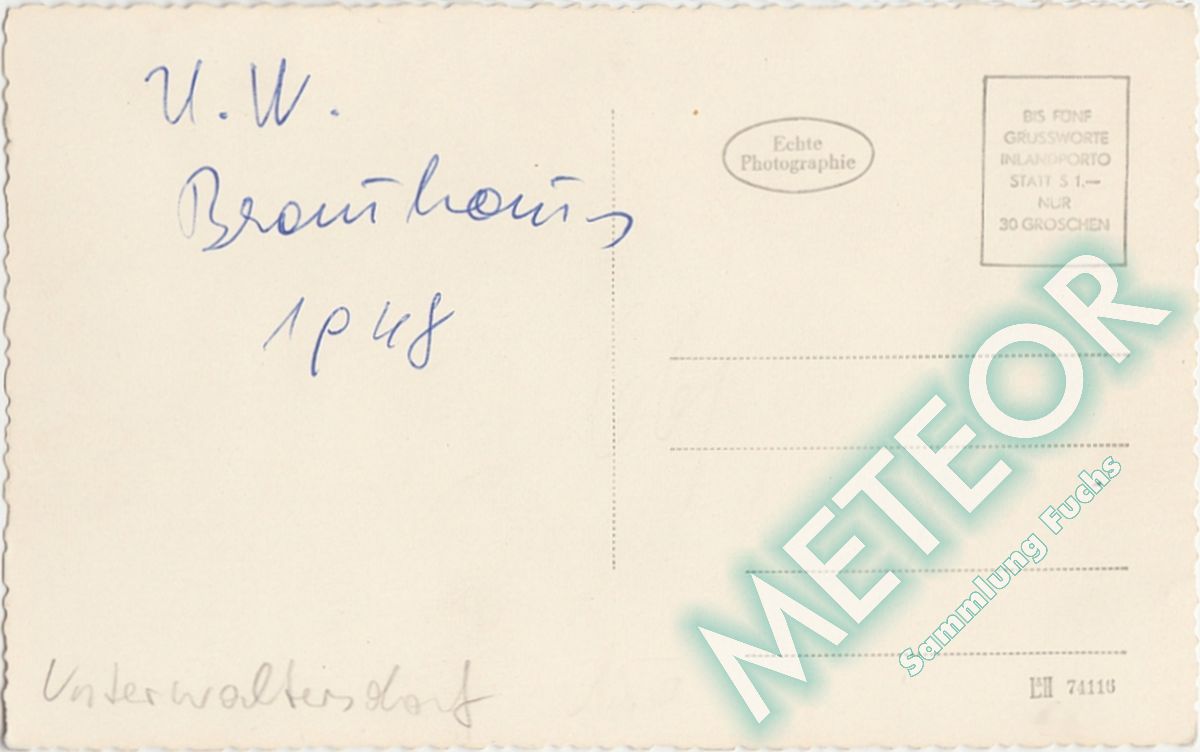 U. W.
Brauhaus
1948
Echte
Photographie
BIS FÜNF
GRUSSWORTE
INLANDPORTO
STATT S 1.—
NUR
30 GROSCHEN
METEOR
Sammlung Fuchs
Unterwaltersdorf
74116